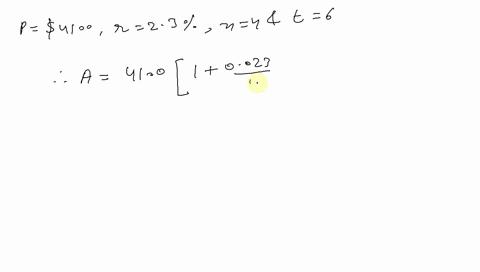 P = $4100, r = 2.3%, n = 4 & t = 6
∴ A = 4100 [ 1 + 0.023